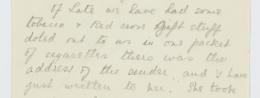 Of Late we have had some
tobacco & Red cross gift stuff
doled out to us in one packet
of cigarettes there was the
address of the sender and I have
just written to her. She took